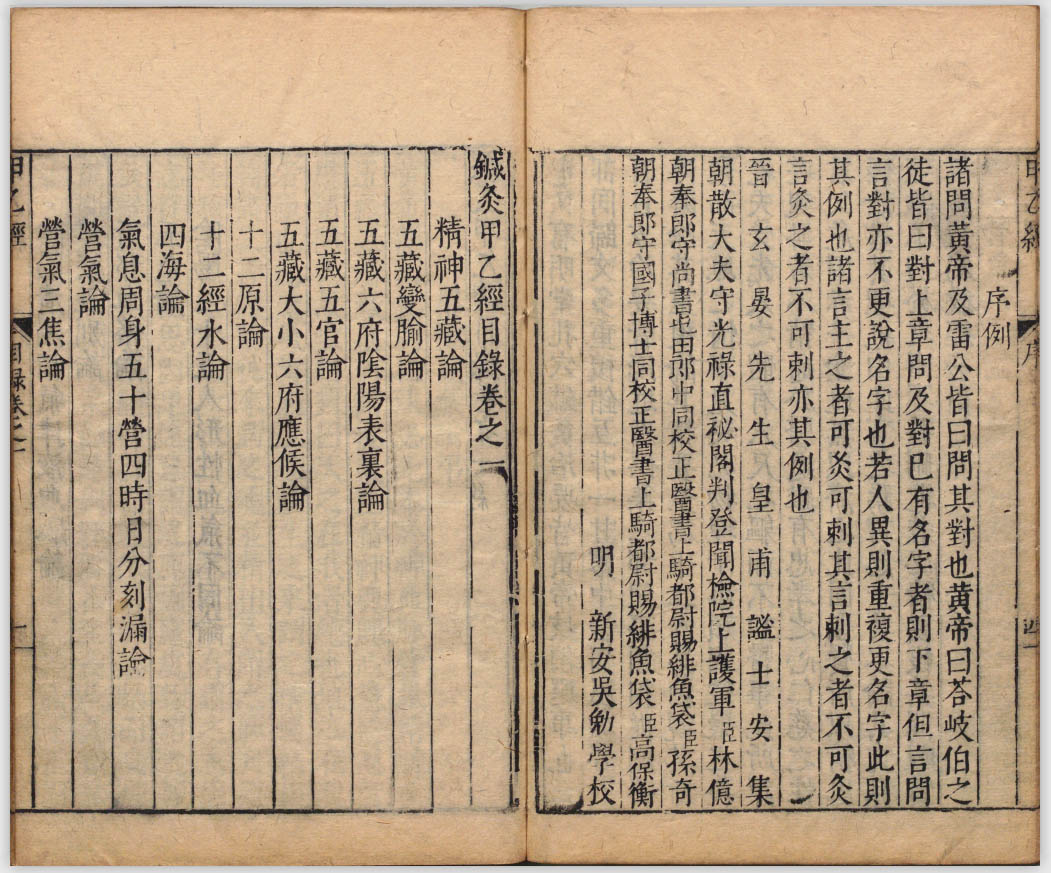 甲乙經
序
四
序例
諸問黃帝及雷公皆曰問其對也黃帝曰荅岐伯之
徒皆曰對上章問及對巳有名字者則下章但言問
言對亦不更說名字也若人異則重複更名字此則
其例也諸言主之者可灸可刺其言刺之者不可灸
言灸之者不可刺亦其例也
晉玄晏先生皇甫謐士安集
朝散大夫守光祿直祕閣判登聞檢院上護軍臣林億
朝奉郎守尚書屯田郎中同校正醫書上騎都尉賜緋魚袋臣孫奇
朝奉郎守國子博士同校正醫書上騎都尉賜緋魚袋臣高保衡
明新安吳勉學校
鍼灸甲乙經目錄卷之一
精神五藏論
五藏變腧論
五藏六府陰陽表裏論
五藏五官論
五藏大小六府應候論
十二原論
十二經水論
四海論
氣息周身五十營四時日分刻漏論
營氣論
營氣三焦論
甲乙經
目錄卷之一
一